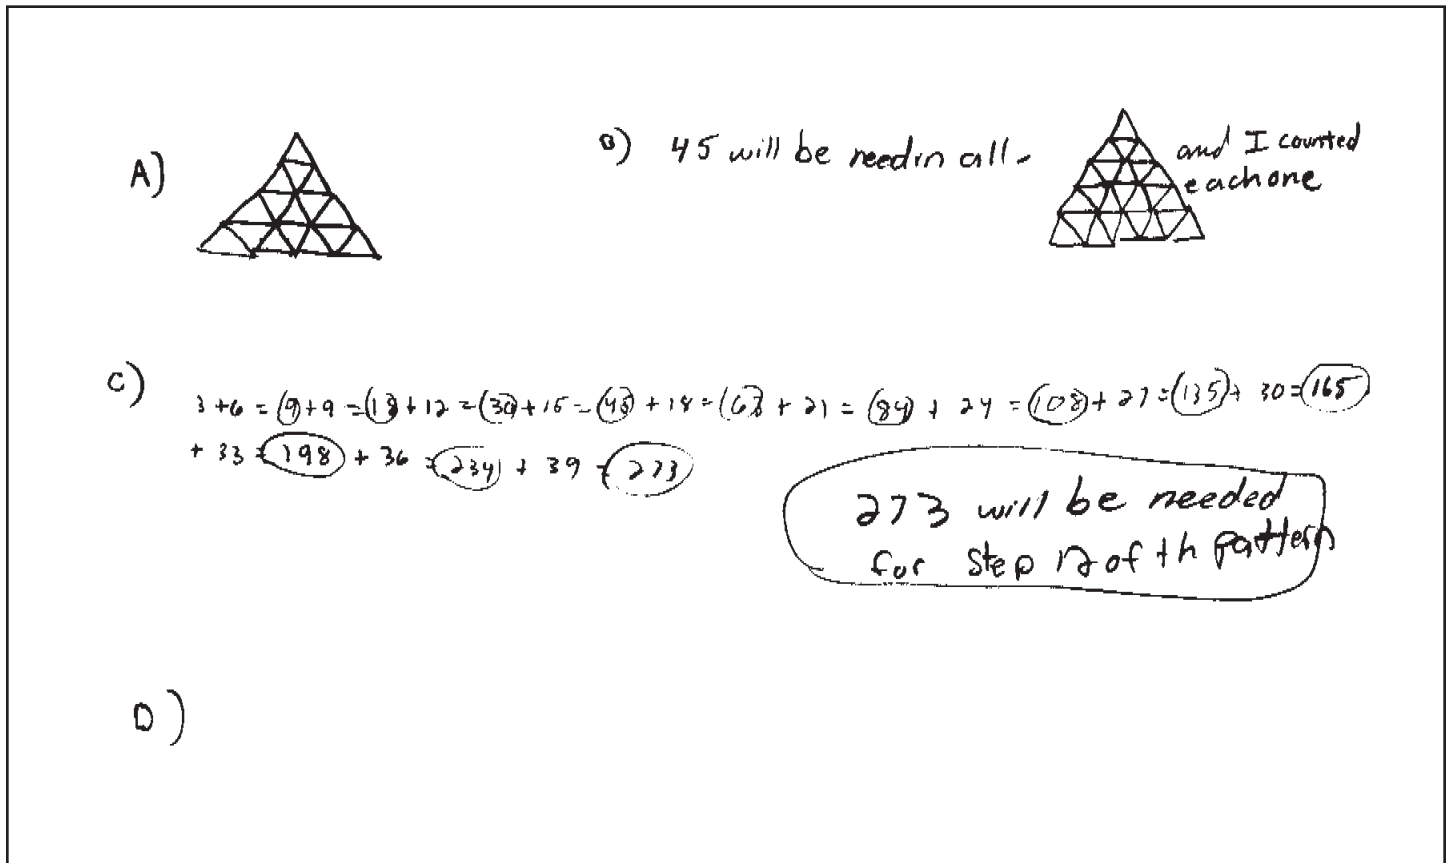 A)
B) 45 will be needin all-
and I counted
each one
C)
3+6 = 9+9 = 18+12 = 30+15 = 45 + 18 = 63 + 21 = 84 + 24 = 108 + 27 = 135 + 30 = 165
+ 33 = 198 + 36 = 234 + 39 = 273
273 will be needed
for step 12 of th pattern
D)